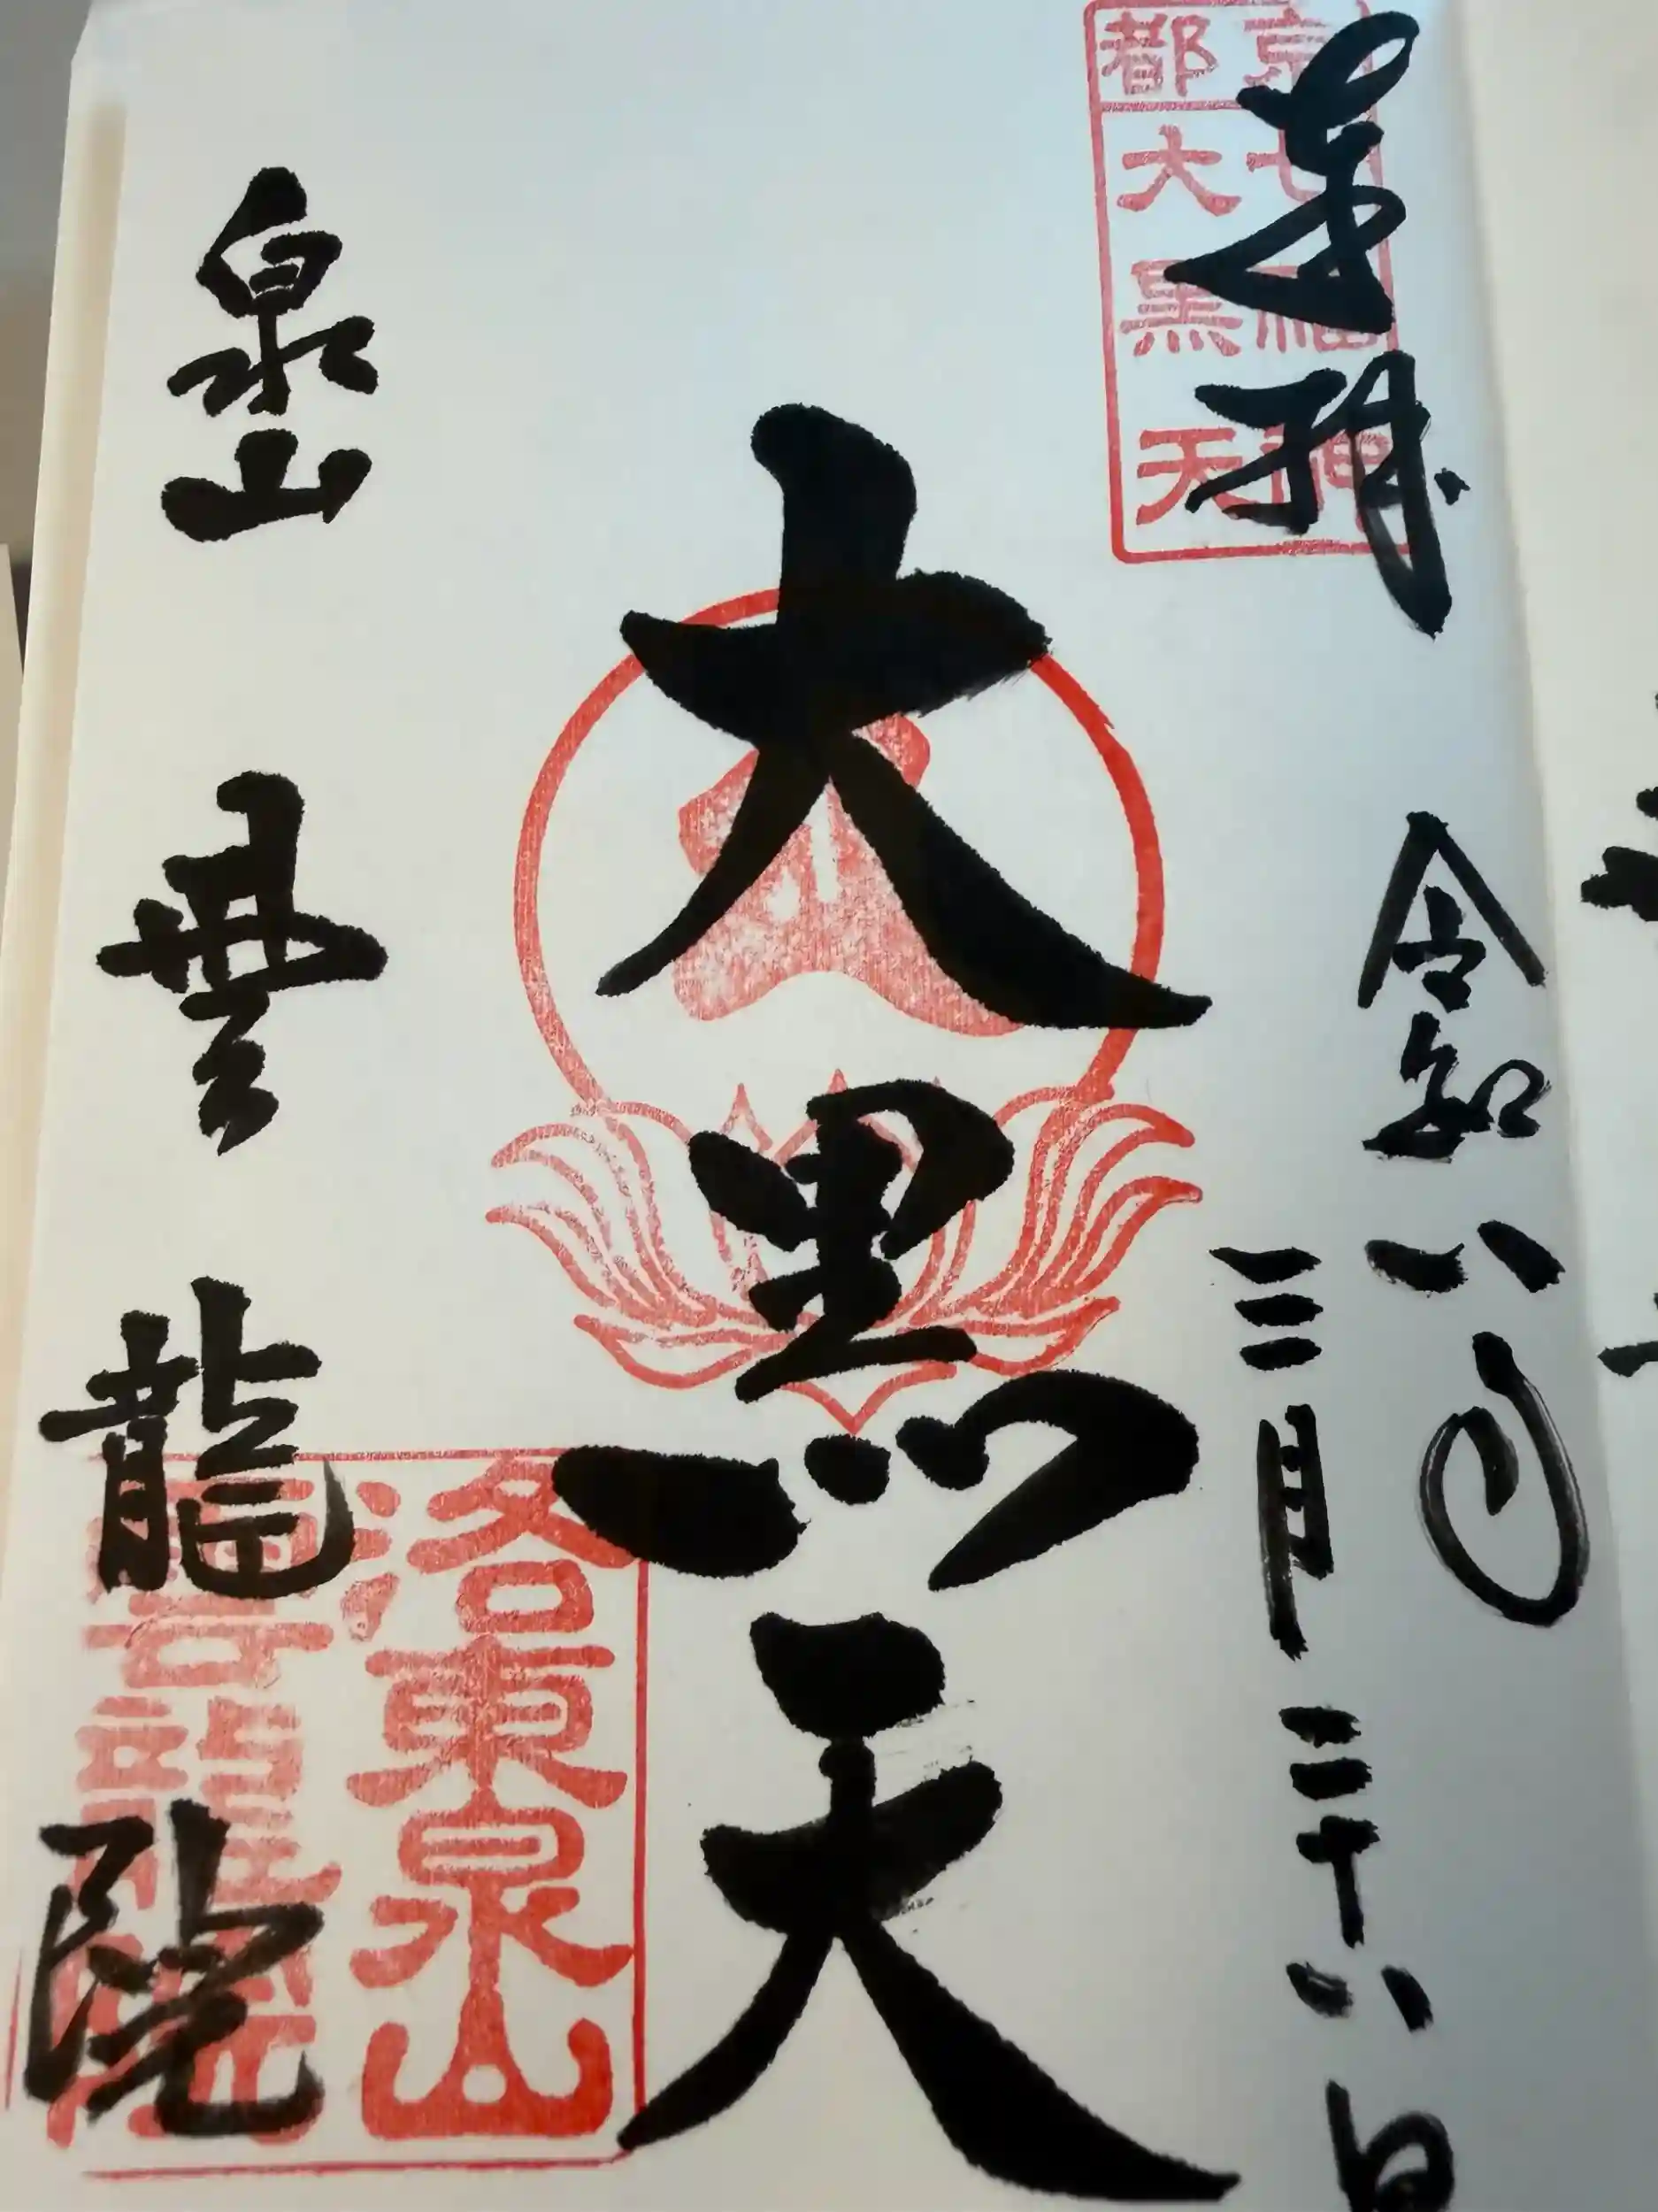 奉拝
令和八年
三月二十八日
大黒天
泉山
雲龍院
京都
七福神
大黒天
洛東泉山
雲龍院